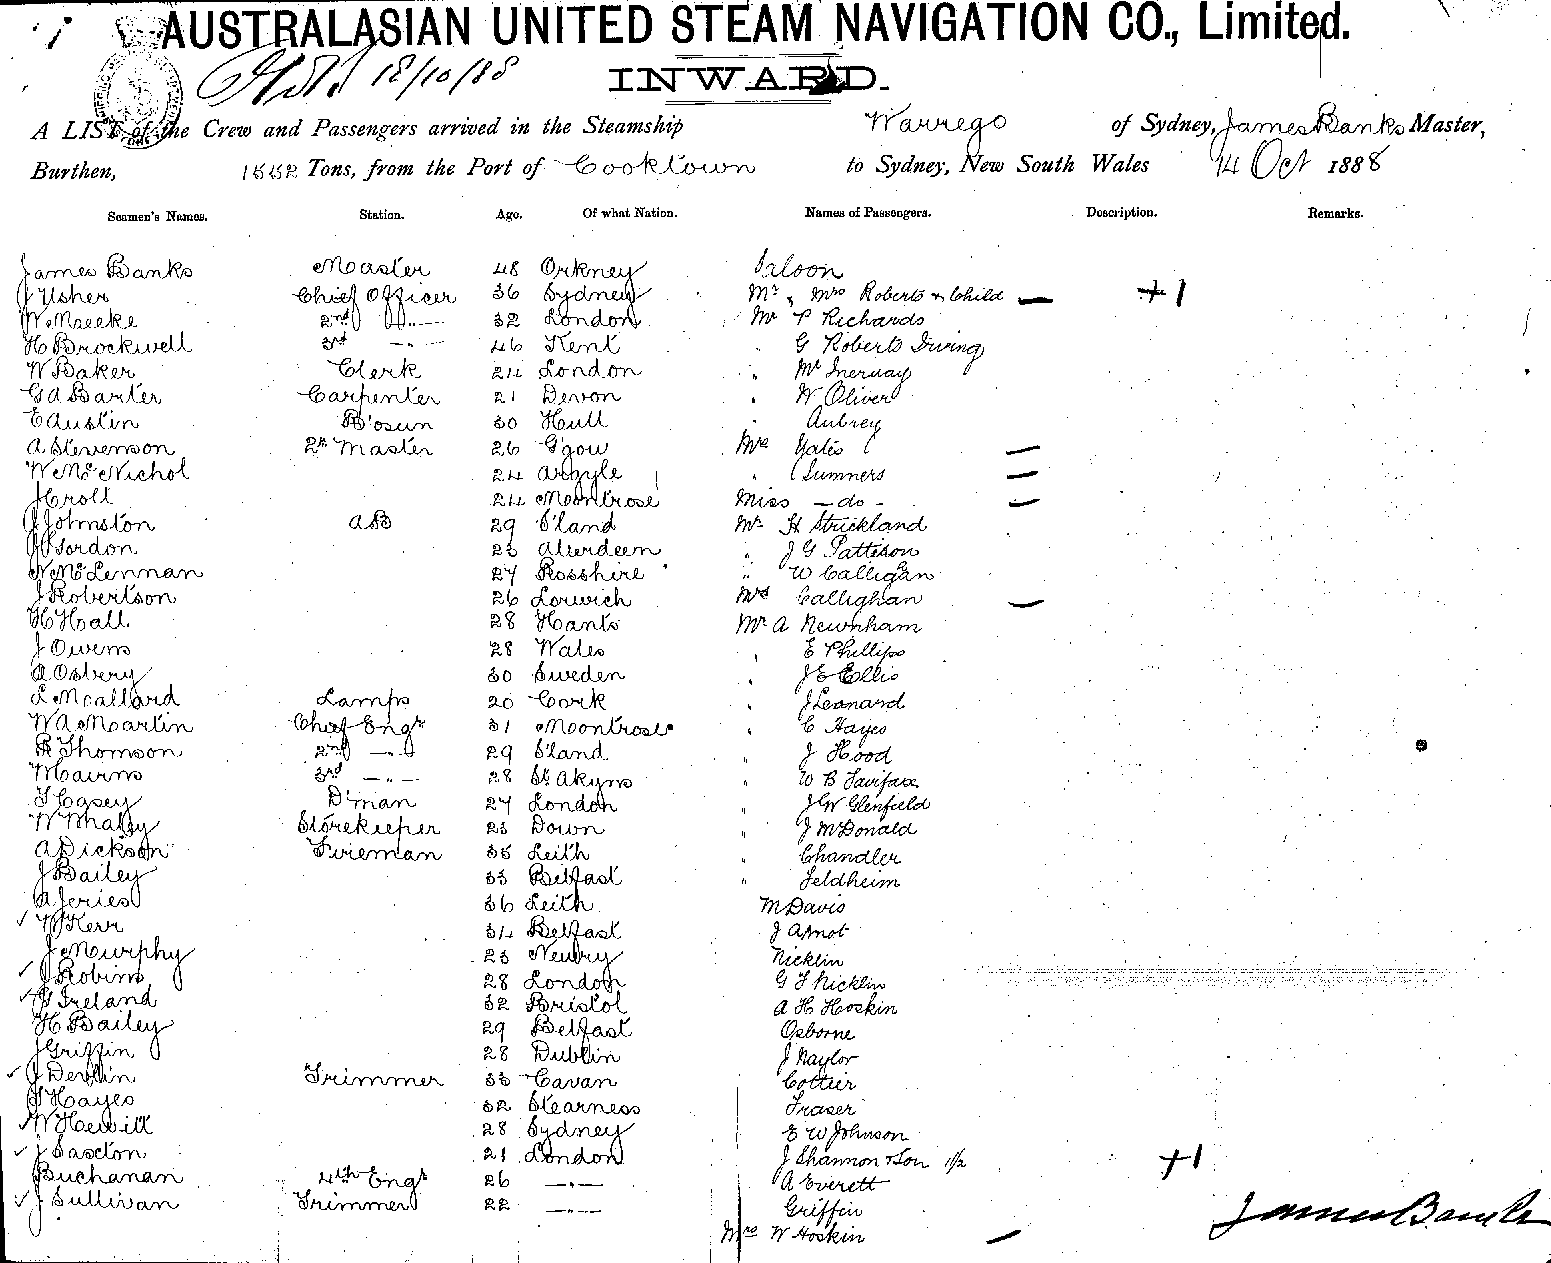 AUSTRALASIAN UNITED STEAM NAVIGATION CO., Limited.
18/10/88
INWARD.
A LIST of the Crew and Passengers arrived in the Steamship Warrego of Sydney, James Banks Master,
Burthen, 1552 Tons, from the Port of Cooktown to Sydney, New South Wales 14 Oct 1888
Seamen's Names. Station. Age. Of what Nation. Names of Passengers. Description. Remarks.
James Banks Master 48 Orkney Saloon
J Usher Chief Officer 36 Sydney Mr & Mrs Roberts & Child — + 1
2nd " 32 London Mr P Richards
H Brockwell 3rd — " — 46 Kent " G Roberts
W Baker Clerk 24 London " Mr
G A Barter Carpenter 21 Devon " W Oliver
E Austin B'osun 30 Hull " Aubrey
A Stevenson 2nd Master 26 G'gow Mrs Yates —
W McNichol 24 Argyle " Sumners —
J Croll 24 Montrose Miss — do - —
J Johnston AB 29 S'land Mr H Strickland
J Gordon 23 Aberdeen " J G Pattison
N McLennan 27 Rosshire " W Calligan
J Robertson 26 Lerwich Mrs Callighan —
H Hall 28 Hants Mr A Newnham
J Owens 28 Wales " E Phillips
A Osbery 30 Sweden " J E Ellis
L Mcallard Lamps 20 Cork " J Leonard
W A Martin Chief Engr 31 Montrose " C Hayes
R Thomson 2nd — " 29 S'land " J Hood
M Cairns 3rd — " — 28 " W B Fairfax
T Casey D'man 27 London " J W Glenfield
W Whalley Storekeeper 23 Down " J McDonald
A Dickson Fireman 35 Leith " Chandler
J Bailey 33 Belfast " Feldheim
A Jeries 36 Leith M Davis
W Kerr 34 Belfast J Arnot
J Murphy 23 Newry Nicklin
J Robins 28 London G F Nicklin
G Ireland 32 Bristol A H Hoskin
H Bailey 29 Belfast Osborne
J Griffin 28 Dublin J Naylor
J Devlin Trimmer 33 Cavan Cottier
T Hayes 32 Stearness Fraser
W Hewitt 28 Sydney E W Johnson
J Saxton 21 London J Shannon & Son 1/2 + 1
Buchanan 4th Engr 26 — " — A Everett
J Sullivan Trimmer 22 — " — Griffin
Mrs W Hoskin —
James Banks